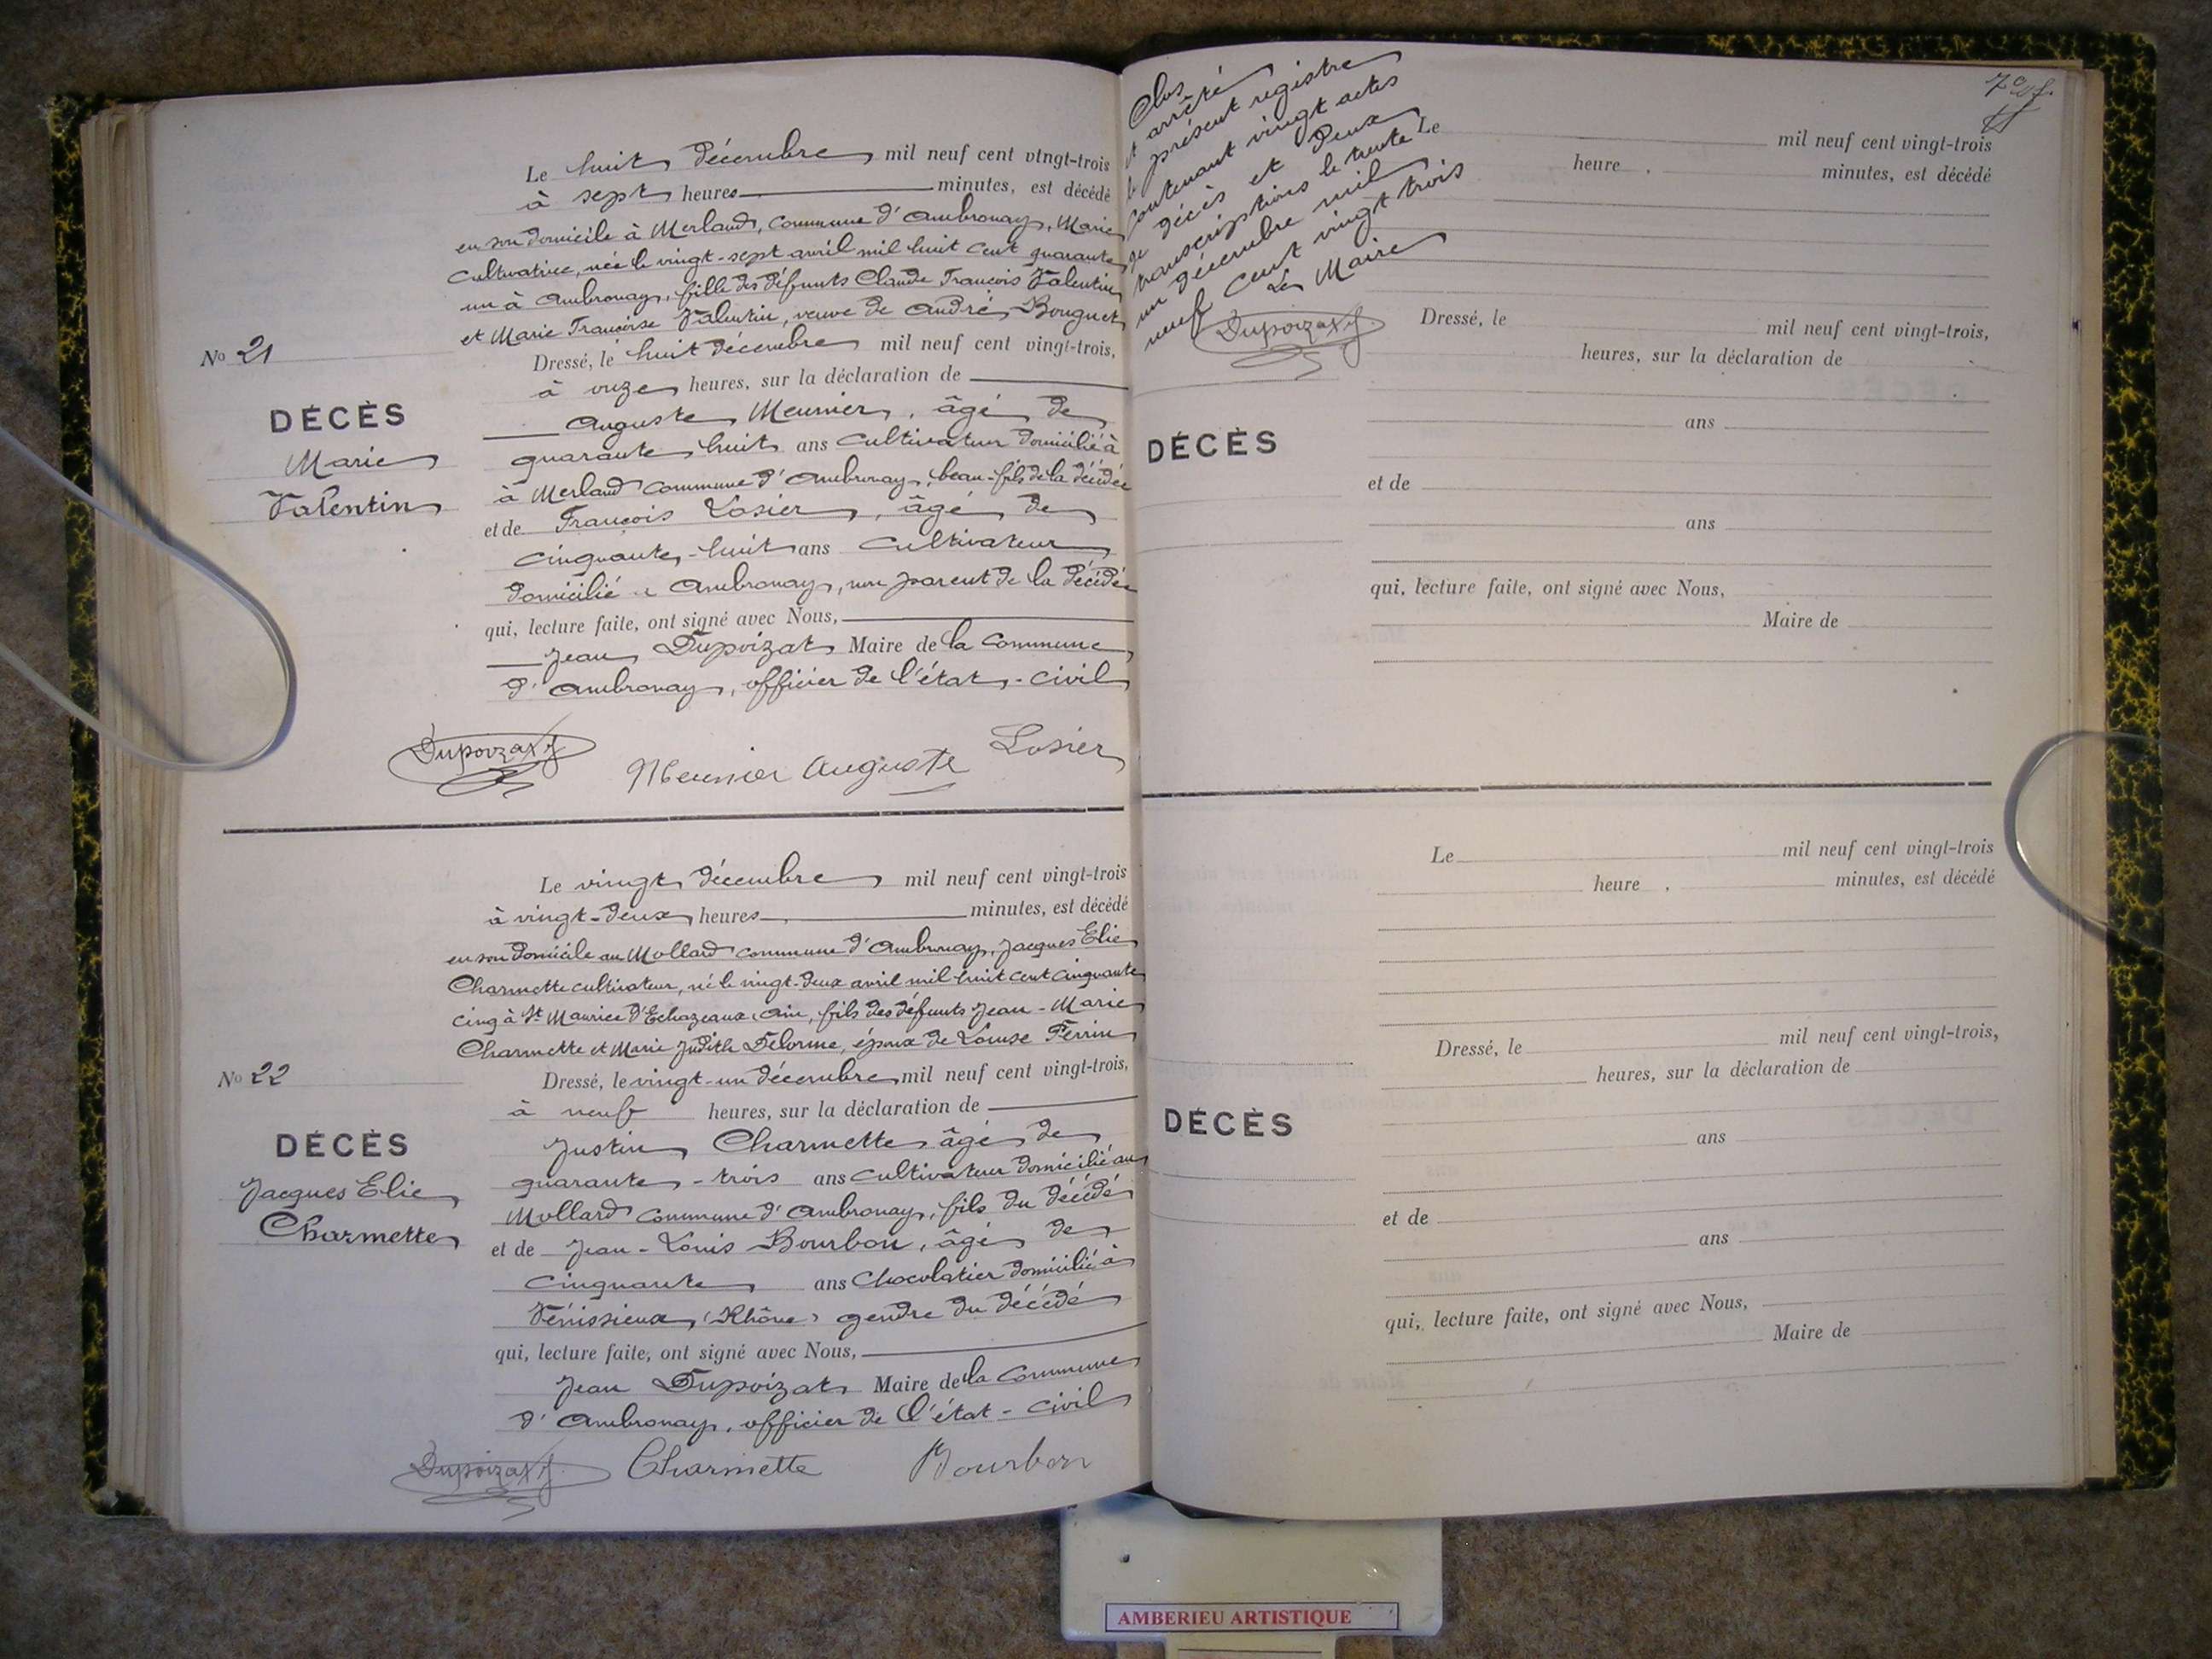 Le huit décembre mil neuf cent vingt-trois
à sept heures minutes, est décédé
en son domicile à Merland, commune d'Ambronay, Marie
cultivatrice, née le vingt-sept avril mil huit cent quarante
un à Ambronay, fille des défunts Claude François Valentin
et Marie Françoise Valentin, veuve de André Bouguet
No 21
Dressé, le huit décembre mil neuf cent vingt-trois,
à onze heures, sur la déclaration de
DÉCÈS
Marie
Valentin
Auguste Meunier, âgé de
quarante huit ans cultivateur domicilié à
à Merland commune d'Ambronay, beau-fils de la décédée
et de François Losier, âgé de
cinquante-huit ans cultivateur
domicilié à Ambronay, non parent de la décédée
qui, lecture faite, ont signé avec Nous,
Jean Dupoizat Maire de la commune
d'Ambronay, officier de l'état-civil
Dupoizat J Meunier Auguste Losier
Le vingt décembre mil neuf cent vingt-trois
à vingt-deux heures minutes, est décédé
en son domicile au Mollard commune d'Ambronay, Jacques Elie
Charmette cultivateur, né le vingt-deux avril mil huit cent cinquante
cinq à St Maurice d'Echazeaux, Ain, fils des défunts Jean-Marie
Charmette et Marie Judith Delorme, époux de Louise Perrin
No 22
Dressé, le vingt-un décembre mil neuf cent vingt-trois,
à neuf heures, sur la déclaration de
DÉCÈS
Jacques Elie
Charmette
Justin Charmette âgé de
quarante-trois ans cultivateur domicilié au
Mollard commune d'Ambronay, fils du décédé
et de Jean-Louis Bourbon, âgé de
cinquante ans chocolatier domicilié à
Vénissieux (Rhône) gendre du décédé
qui, lecture faite, ont signé avec Nous,
Jean Dupoizat Maire de la commune
d'Ambronay, officier de l'état-civil
Dupoizat J. Charmette Bourbon
Clos
et arrêté
le présent registre
contenant vingt actes
de décès et deux
transcriptions le trente
un décembre mil
neuf cent vingt trois
Le Maire
Dupoizat J
Le mil neuf cent vingt-trois
heure minutes, est décédé
Dressé, le mil neuf cent vingt-trois,
heures, sur la déclaration de
DÉCÈS
ans
et de
ans
qui, lecture faite, ont signé avec Nous,
Maire de
Le mil neuf cent vingt-trois
heure minutes, est décédé
Dressé, le mil neuf cent vingt-trois,
heures, sur la déclaration de
DÉCÈS
ans
et de
ans
qui, lecture faite, ont signé avec Nous,
Maire de
AMBERIEU ARTISTIQUE